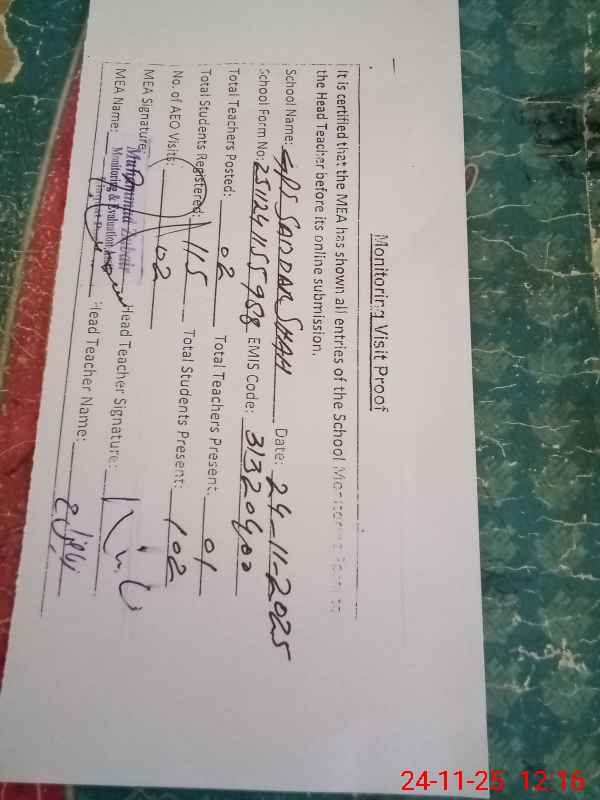 Monitoring Visit Proof
It is certified that the MEA has shown all entries of the School Monitoring
the Head Teacher before its online submission.
School Name: GPS SARDAR SHAH Date: 24-11-2025
School Form No: 2511241155958 EMIS Code: 31320400
Total Teachers Posted: 02 Total Teachers Present: 01
Total Students Registered: 115 Total Students Present: 102
No. of AEO Visits: 02
MEA Signature: Head Teacher Signature:
Muhammad Zubair
Monitoring & Evaluation
MEA Name: Head Teacher Name:
24-11-25 12:16